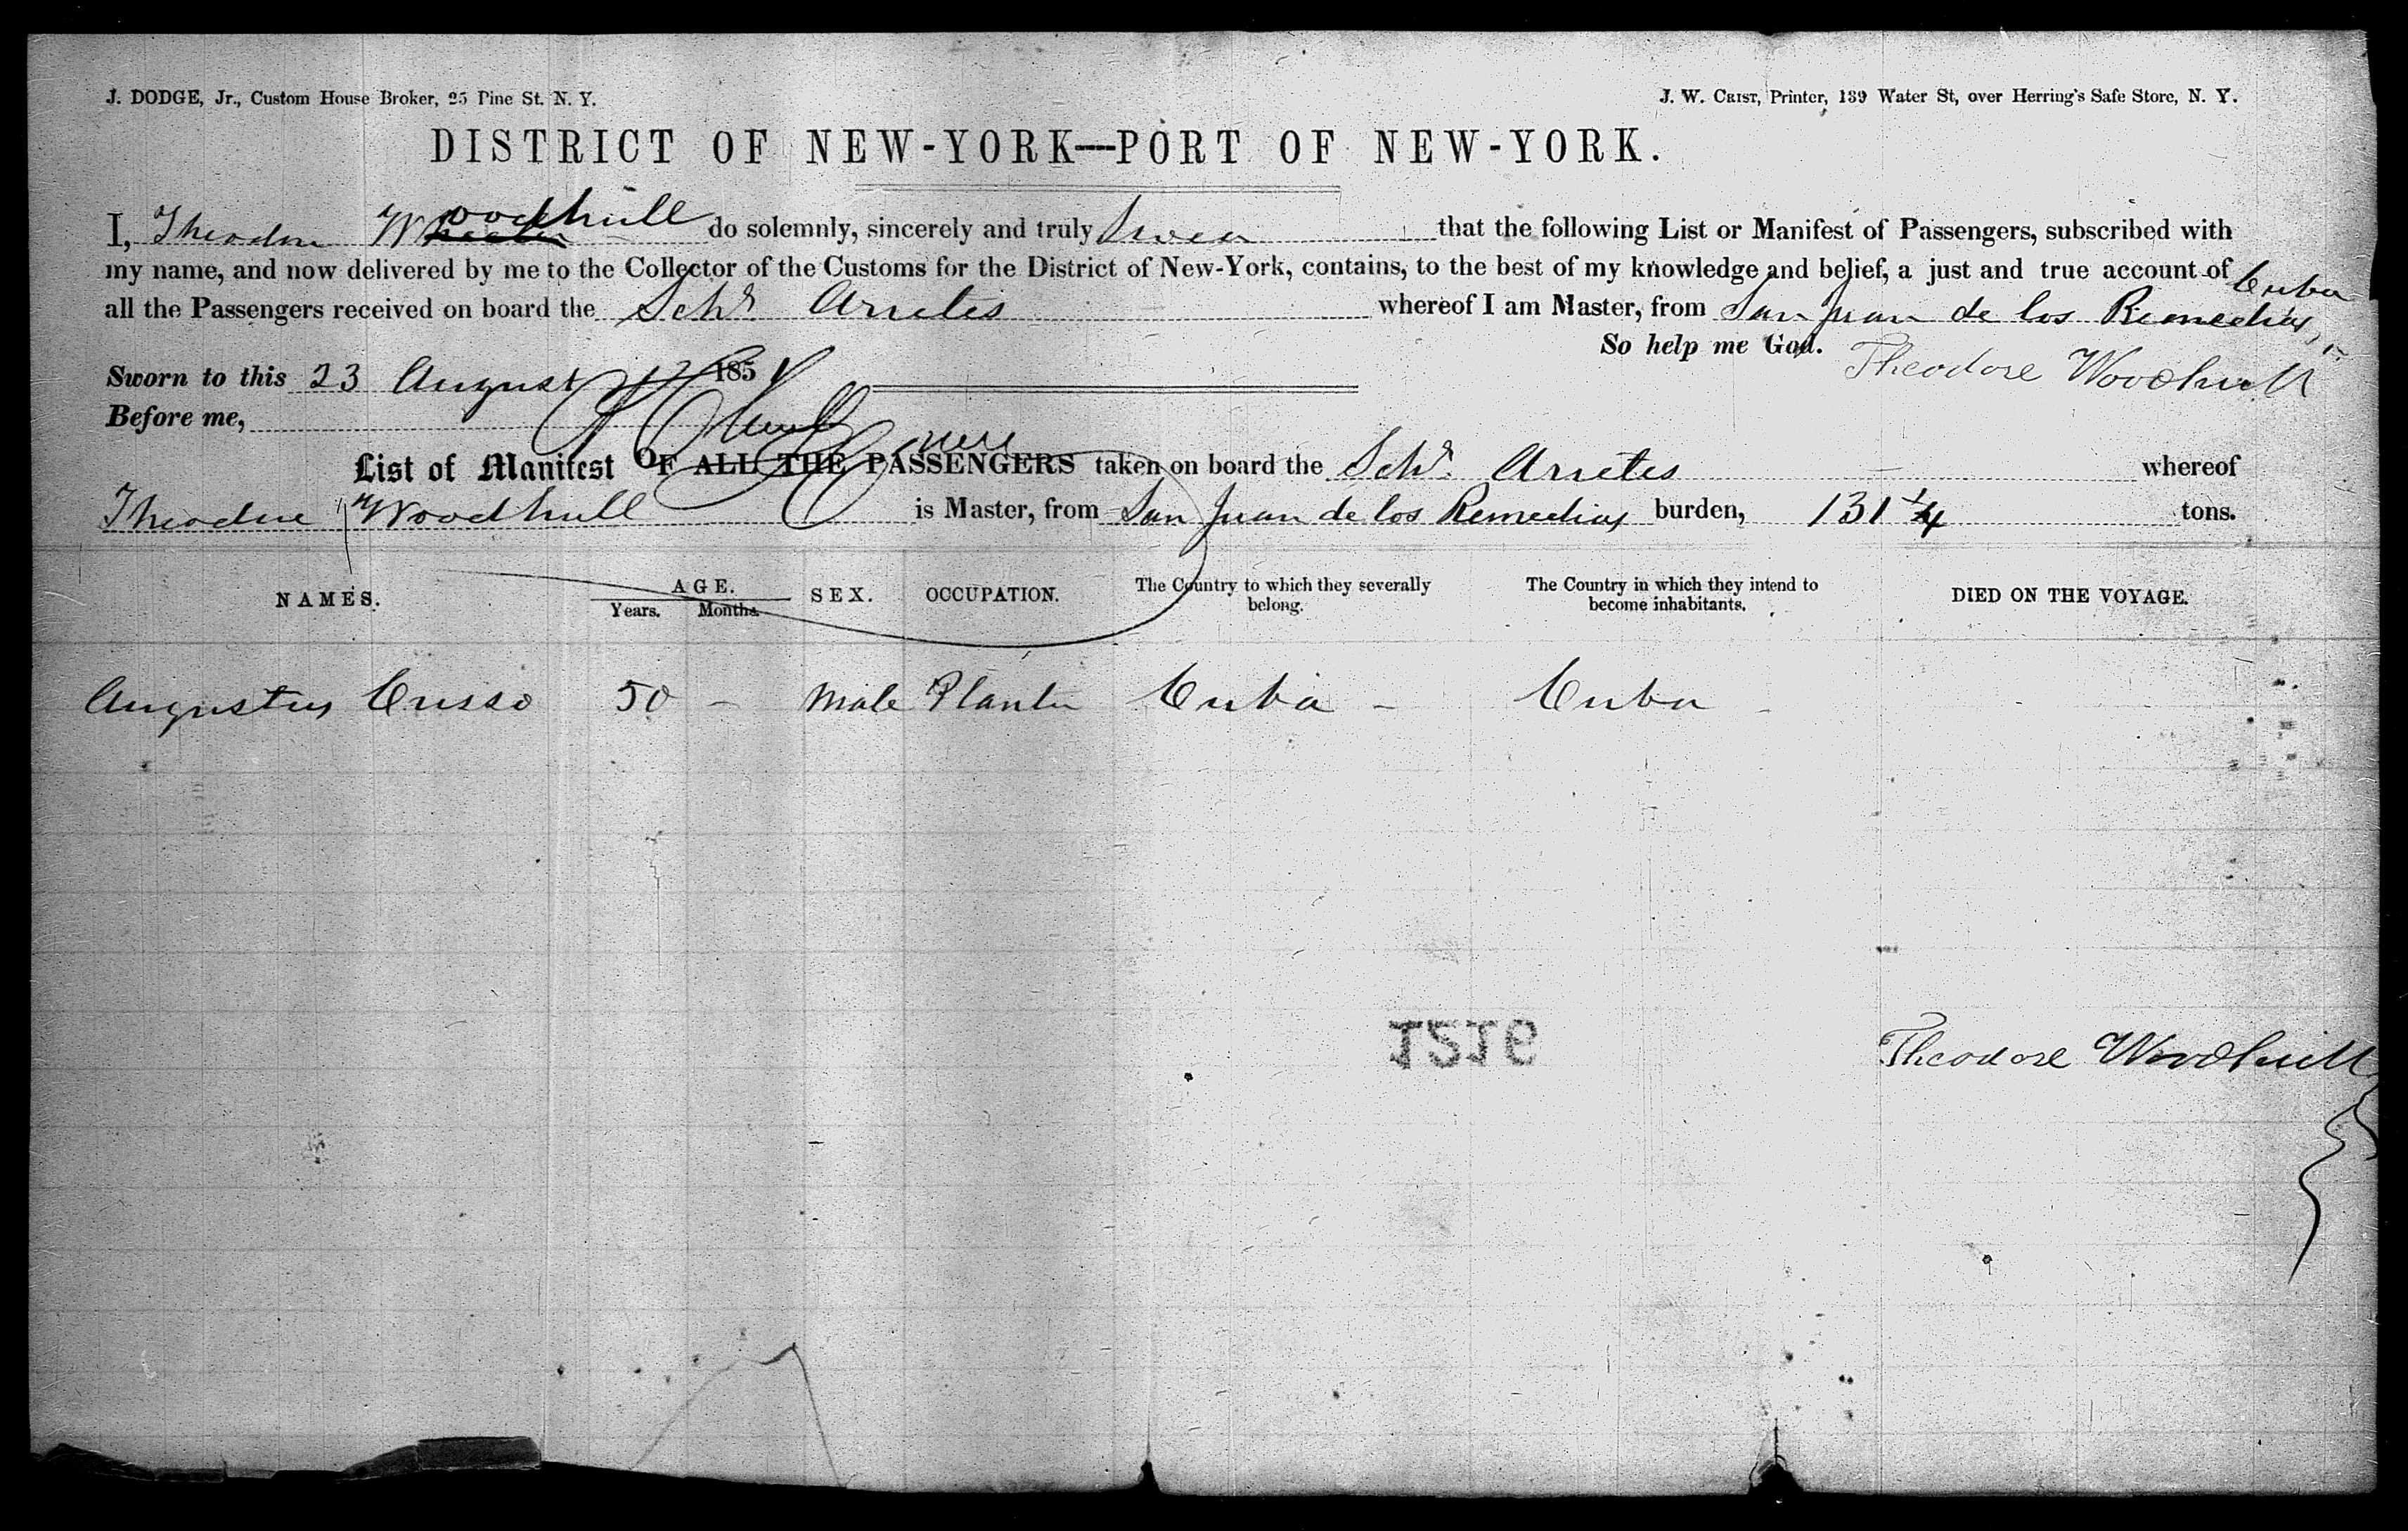 J. DODGE, Jr., Custom House Broker, 25 Pine St. N. Y.
J. W. CRIST, Printer, 139 Water St, over Herring's Safe Store, N. Y.
DISTRICT OF NEW-YORK—PORT OF NEW-YORK.
I, Theodore Woodhull do solemnly, sincerely and truly Swear that the following List or Manifest of Passengers, subscribed with
my name, and now delivered by me to the Collector of the Customs for the District of New-York, contains, to the best of my knowledge and belief, a just and true account of
all the Passengers received on board the Schr. Arietis whereof I am Master, from San Juan de los Remedios, Cuba
So help me God. Theodore Woodhull
Sworn to this 23 August 185
Before me,
List of Manifest OF ALL THE PASSENGERS taken on board the Schr. Arietis whereof
Theodore Woodhull is Master, from San Juan de los Remedios burden, 131 1/4 tons.
NAMES. AGE. SEX. OCCUPATION. The Country to which they severally belong. The Country in which they intend to become inhabitants. DIED ON THE VOYAGE.
Years. Months.
Augustus Crisso 50 – Male Planter Cuba – Cuba –
1216
Theodore Woodhull